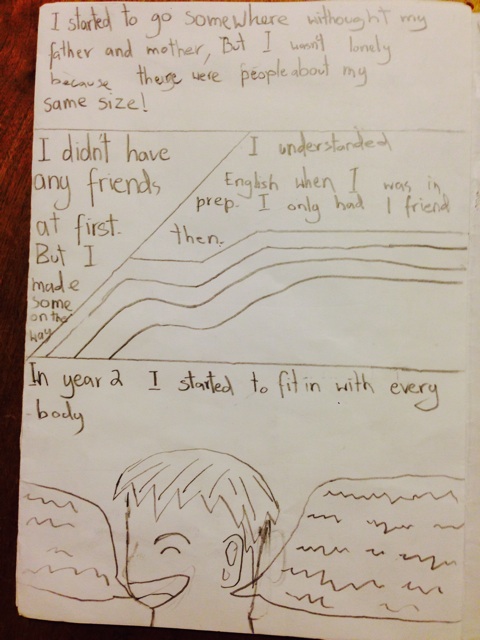 I started to go somewhere withought my
father and mother, But I wasn't lonely
because there were people about my
same size!
I didn't have
any friends
at first.
But I
made
some
on the
way
I understanded
English when I was in
prep. I only had 1 friend
then.
In year 2 I started to fit in with every
body